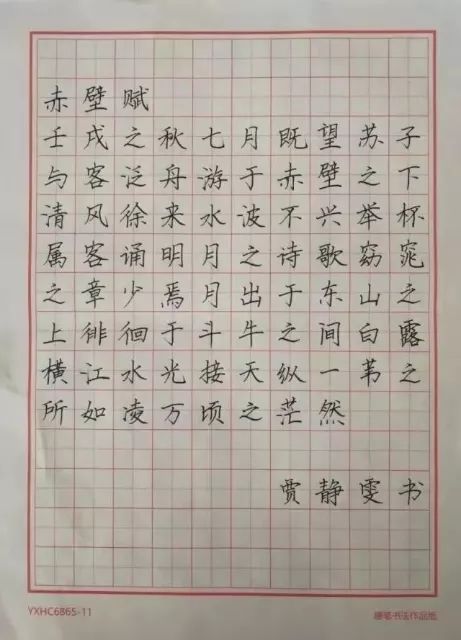 赤壁赋
壬戌之秋七月既望苏子
与客泛舟游于赤壁之下
清风徐来水波不兴举杯
属客诵明月之诗歌窈窕
之章少焉月出于东山之
上徘徊于斗牛之间白露
横江水光接天纵一苇之
所如凌万顷之茫然
贾静雯书
YXHC6865-11 硬笔书法作品纸